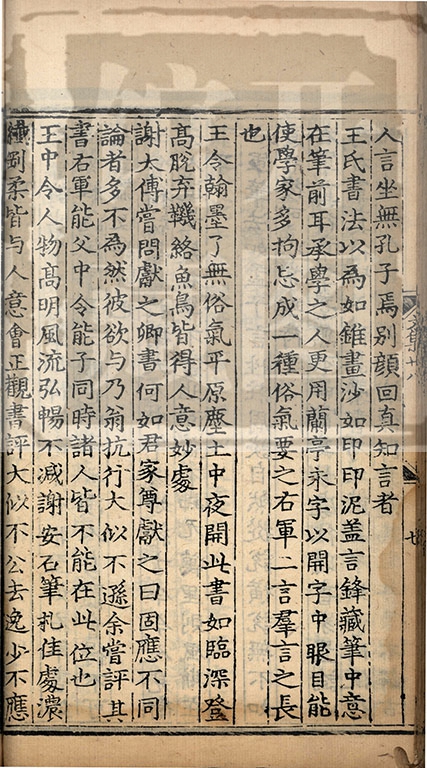 人言坐無孔子焉别顔回真知言者
王氏書法以為如錐畫沙如印印泥盖言鋒藏筆中意
在筆前耳承學之人更用蘭亭永字以開字中眼目能
使學家多拘忌成一種俗氣要之右軍二言羣言之長
也
王令翰墨了無俗氣平原塵土中夜開此書如臨深登
髙脫弃韈絡魚鳥皆得人意妙處
謝太傅嘗問獻之卿書何如君家尊獻之曰固應不同
論者多不為然彼欲与乃翁抗行大似不遜余嘗評其
書右軍能父中令能子同時諸人皆不能在此位也
王中令人物髙明風流弘暢不減謝安石筆札佳處濃
纖剛柔皆与人意會正觀書評大似不公去逸少不應